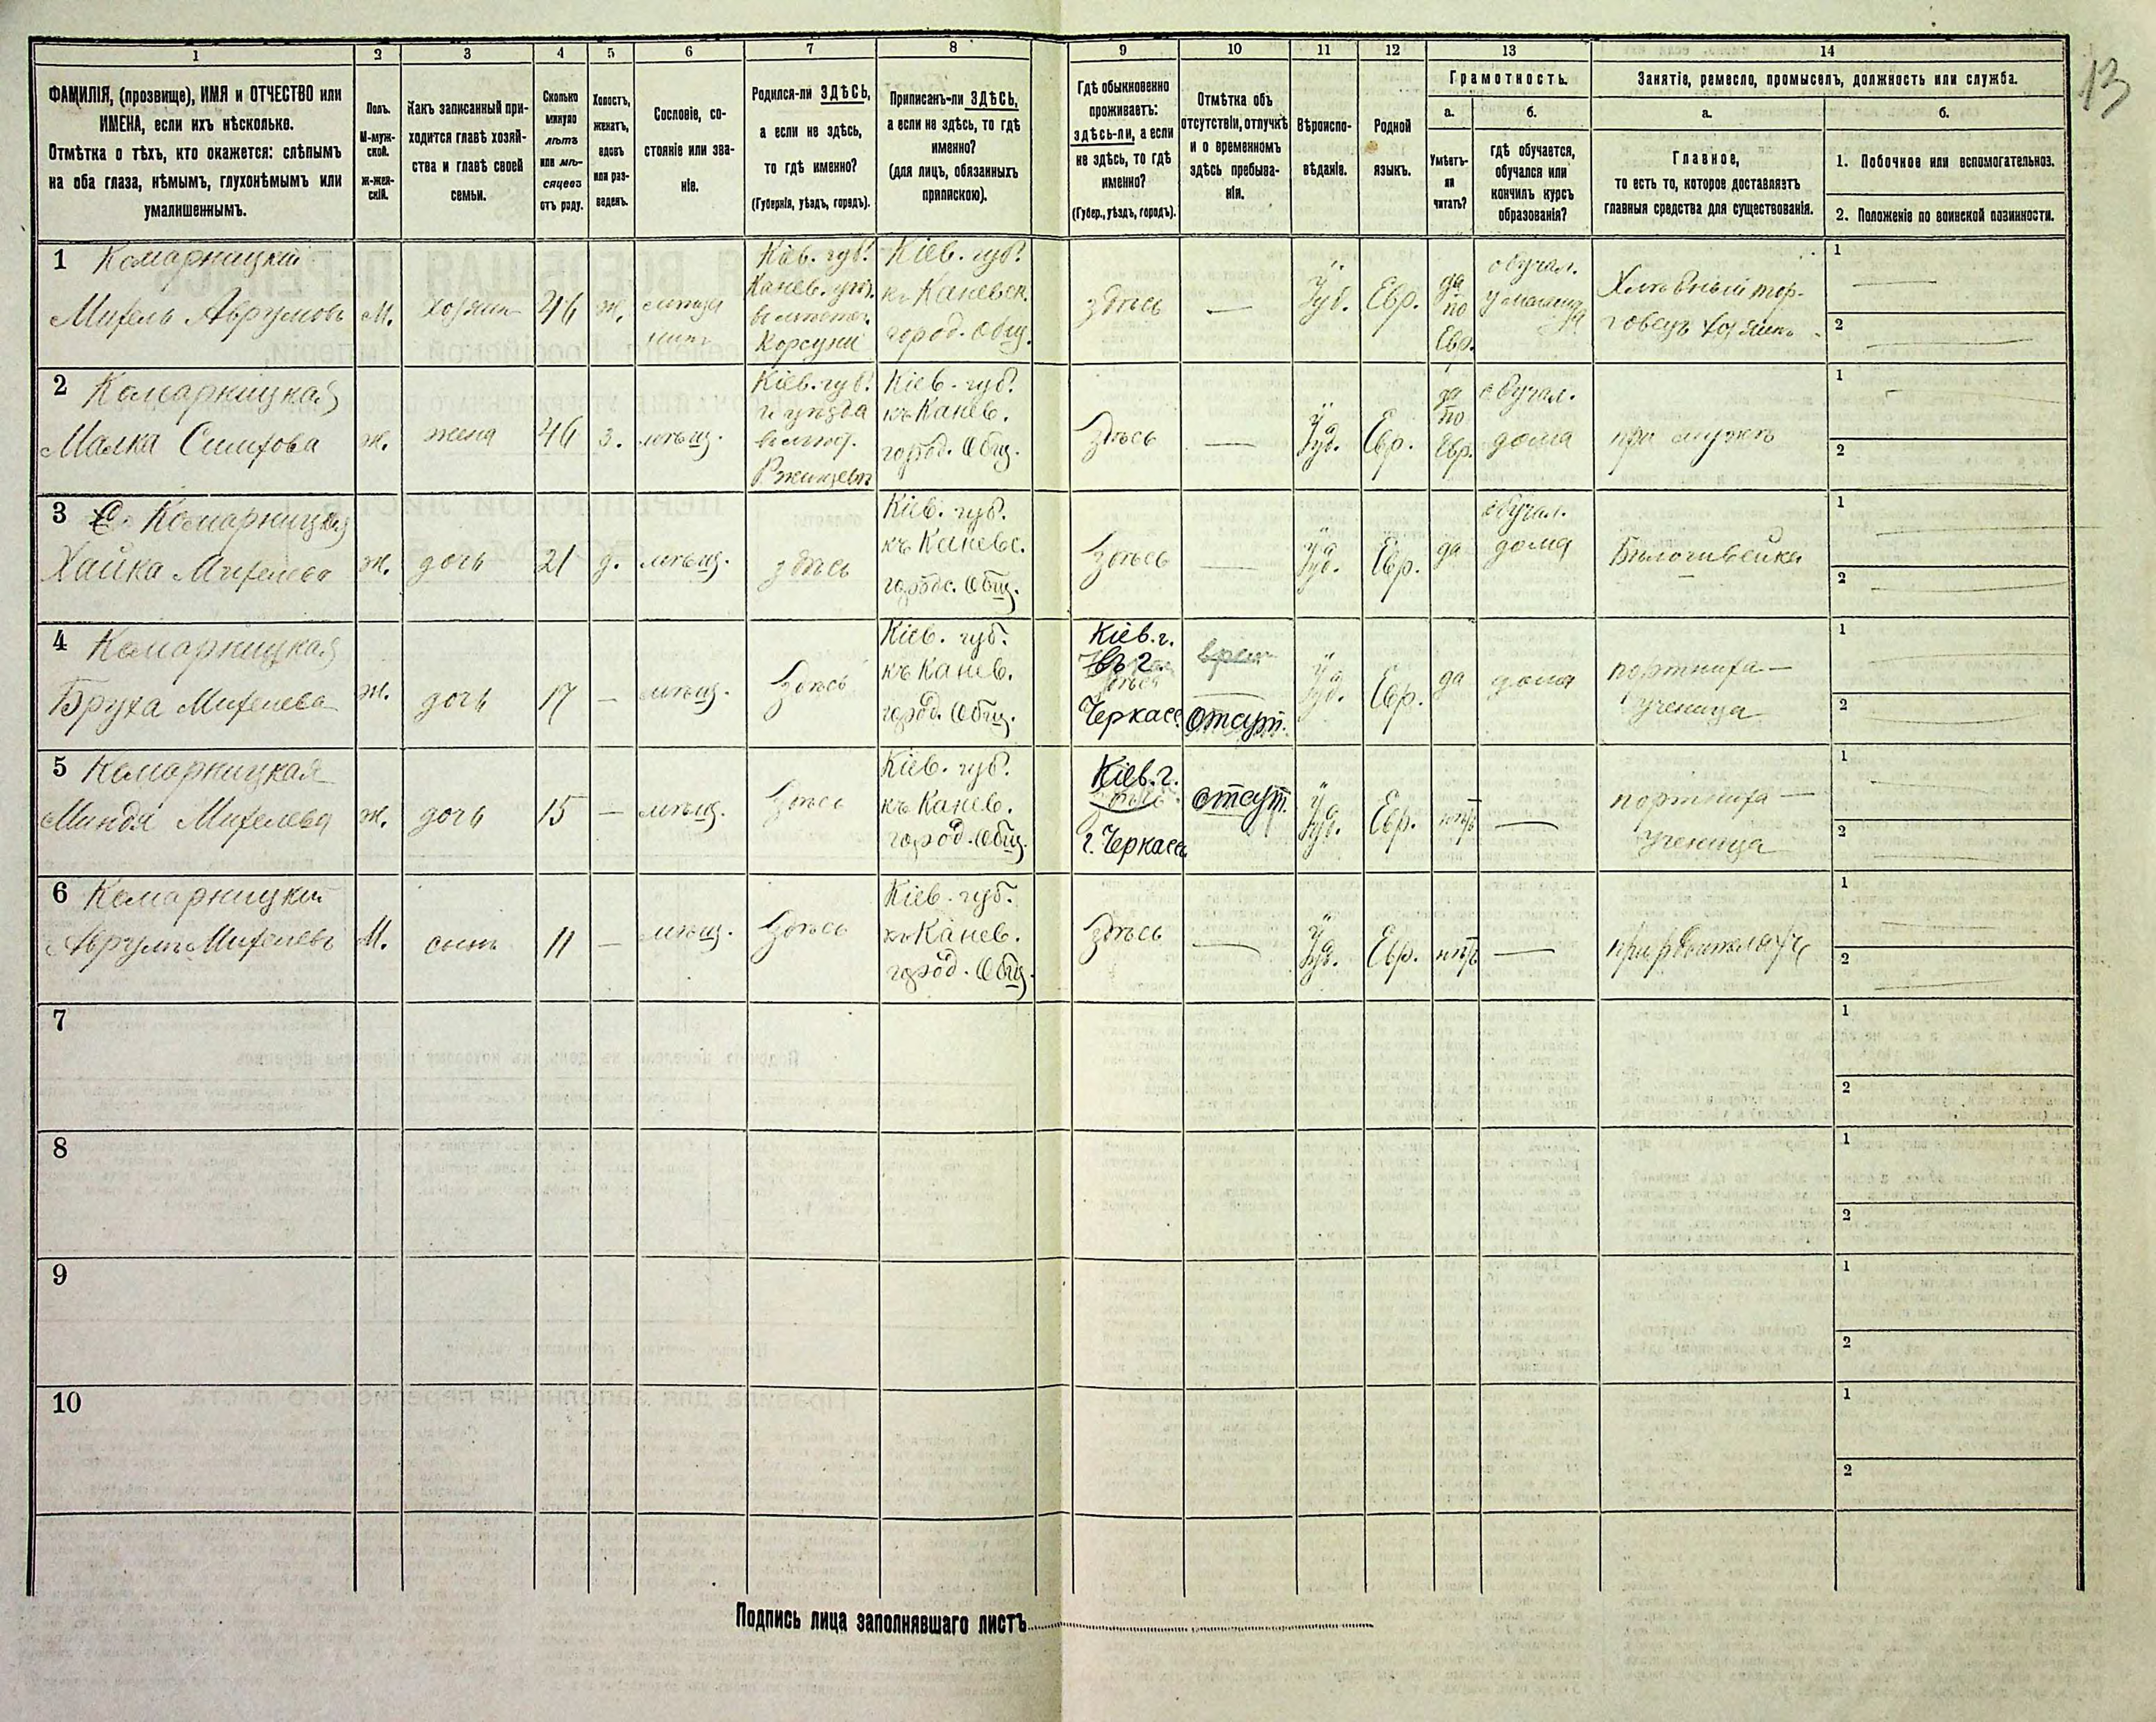 13
1 2 3 4 5 6 7 8 9 10 11 12 13 14
ФАМИЛІЯ, (прозвище), ИМЯ и ОТЧЕСТВО или
ИМЕНА, если ихъ нѣсколько.
Отмѣтка о тѣхъ, кто окажется: слѣпымъ
на оба глаза, нѣмымъ, глухонѣмымъ или
умалишеннымъ.
Полъ.
М-муж-
ской.
Ж-жен-
скій.
Какъ записанный при-
ходится главѣ хозяй-
ства и главѣ своей
семьи.
Сколько
минуло
лѣтъ
или мѣ-
сяцевъ
отъ роду.
Холостъ,
женатъ,
вдовъ
или раз-
веденъ.
Сословіе, со-
стояніе или зва-
ніе.
Родился-ли ЗДѢСЬ,
а если не здѣсь,
то гдѣ именно?
(Губернія, уѣздъ, городъ).
Приписанъ-ли ЗДѢСЬ,
а если не здѣсь, то гдѣ
именно?
(для лицъ, обязанныхъ
припискою).
Гдѣ обыкновенно
проживаетъ:
здѣсь-ли, а если
не здѣсь, то гдѣ
именно?
(Губер., уѣздъ, городъ).
Отмѣтка объ
отсутствіи, отлучкѣ
и о временномъ
здѣсь пребыва-
ніи.
Вѣроиспо-
вѣданіе.
Родной
языкъ.
Грамотность.
а.
Умѣетъ-
ли
читать?
б.
гдѣ обучается,
обучался или
кончилъ курсъ
образованія?
Занятіе, ремесло, промыселъ, должность или служба.
а.
Главное,
то есть то, которое доставляетъ
главныя средства для существованія.
б.
1. Побочное или вспомогательное.
2. Положеніе по воинской повинности.
1 Комарницкій
Михель Аврумовъ
М.
хозяин
46
ж.
мѣща
нинъ
Кіев. губ.
Канев. уѣз.
въ мѣстеч.
Корсуни
Кіев. губ.
къ Каневск.
город. Общ.
здѣсь
—
Іуд.
Евр.
да
по
Евр.
обучал.
у меламеда
Хлѣбный тор-
говецъ хозяинъ
1 —
2 —
2 Комарницкая
Малка Симхова
ж.
жена
46
з.
мѣщ.
Кіев. губ.
и уѣзда
въ мѣст.
Ржищевѣ
Кіев. губ.
къ Канев.
город. Общ.
Здѣсь
—
Іуд.
Евр.
да
по
Евр.
обучал.
дома
при мужѣ
1 -
2
3 Комарницкая
Хайка Михелева
ж.
дочь
21
д.
мѣщ.
здѣсь
Кіев. губ.
къ Каневс.
городс. Общ.
Здѣсь
—
Іуд.
Евр.
да
обучал.
дома
Бѣлошвейка
1 —
2 —
4 Комарницкая
Бруха Михелева
ж.
дочь
17
—
мѣщ.
Здѣсь
Кіев. губ.
къ Канев.
город. Общ.
Кіев. г.
въ г.
Черкасс.
врем
Отсут.
Іуд.
Евр.
да
дома
портниха —
ученица
1 —
2 —
5 Комарницкая
Миндя Михелева
ж.
дочь
15
—
мѣщ.
Здѣсь
Кіев. губ.
къ Канев.
город. Общ.
Кіев. г.
г. Черкассы
отсут.
Іуд.
Евр.
нѣтъ
—
портниха —
ученица
1 —
2 —
6 Комарницкій
Аврумъ Михелевъ
М.
сынъ
11
—
мѣщ.
Здѣсь
Кіев. губ.
къ Канев.
город. Общ.
Здѣсь
—
Іуд.
Евр.
нѣтъ
—
при родителяхъ
1 —
2 —
7
1
2
8
1
2
9
1
2
10
1
2
Подпись лица заполнявшаго листъ